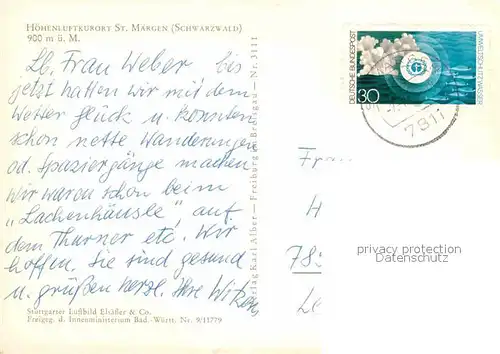 HÖHENLUFTKURORT ST. MÄRGEN (SCHWARZWALD)
900 m ü. M.
Lb. Frau Weber bis
jetzt hatten wir mit dem
Wetter glück u. konnten
schon nette Wanderungen
od. Spaziergänge machen
Wir waren schon beim
„Lachenhäusle“, auf
dem Thurner etc. Wir
hoffen, Sie sind gesund
u. grüßen herzl. Ihre
Stuttgarter Luftbild Elsäßer & Co.
Freigeg. d. Innenministerium Bad.-Württ. Nr. 9/11779
Verlag Karl Alber — Freiburg im Breisgau — Nr. 3111
DEUTSCHE BUNDESPOST
30
UMWELTSCHUTZ: WASSER
7811
Fr
H
78
privacy protection
Datenschutz